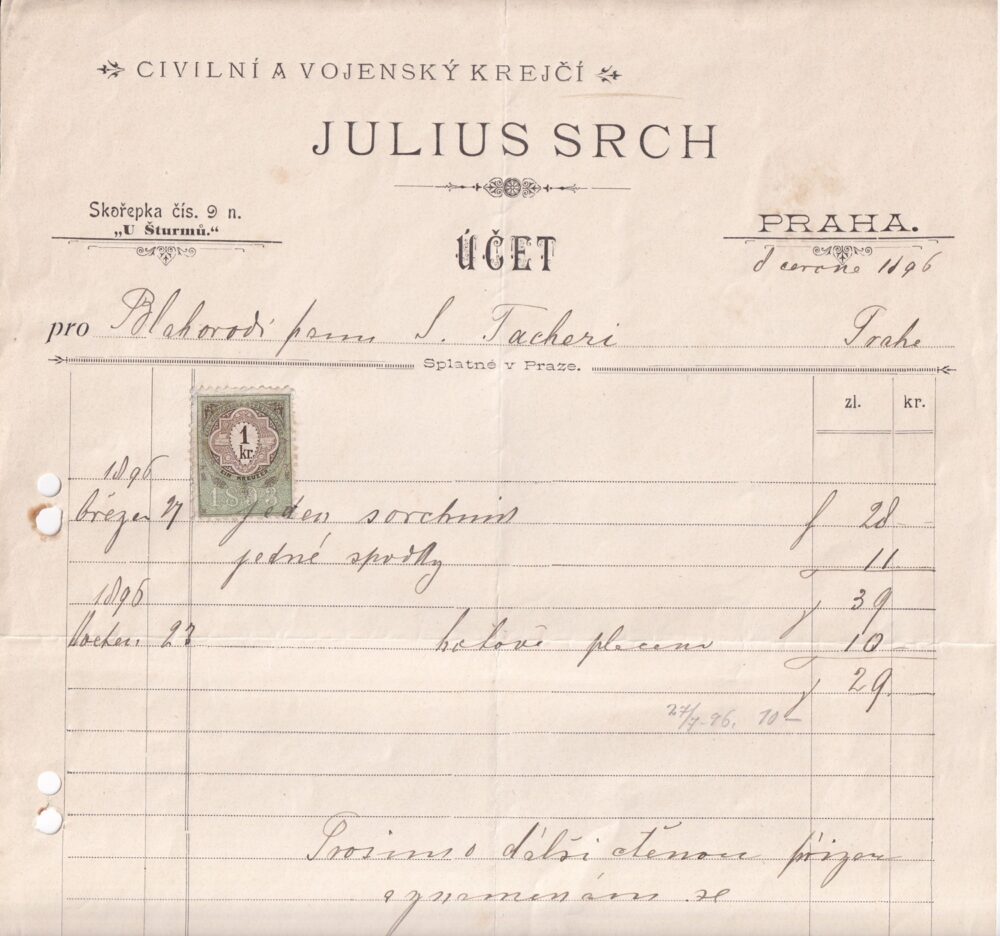 CIVILNÍ A VOJENSKÝ KREJČÍ
JULIUS SRCH
Skořepka čís. 9 n.
„U Šturmů.“
PRAHA.
ÚČET
8 června 1896
pro Blahorodí panu S. Tacheri Praha
Splatné v Praze.
zl. kr.
1 kr.
EIN KREUZER
1893
1896
březen 27 jeden f 28 -
jedné spodky 11
1896 f 39
23 hotově placeno 10 -
f 29.
27/7-96. 10-
Prosím o další ctěnou přízeň
a znamenám se